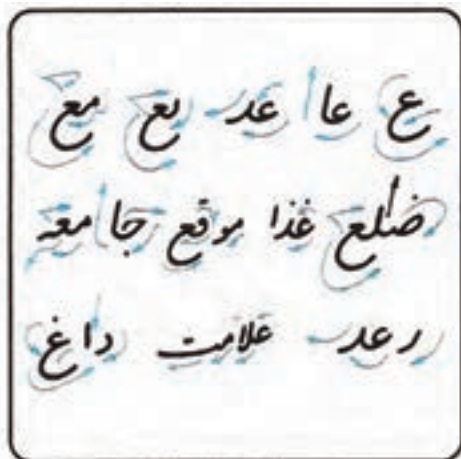 ع عا عد بع مع
ضلع غذا موقع جامعه
رعد علامت داغ